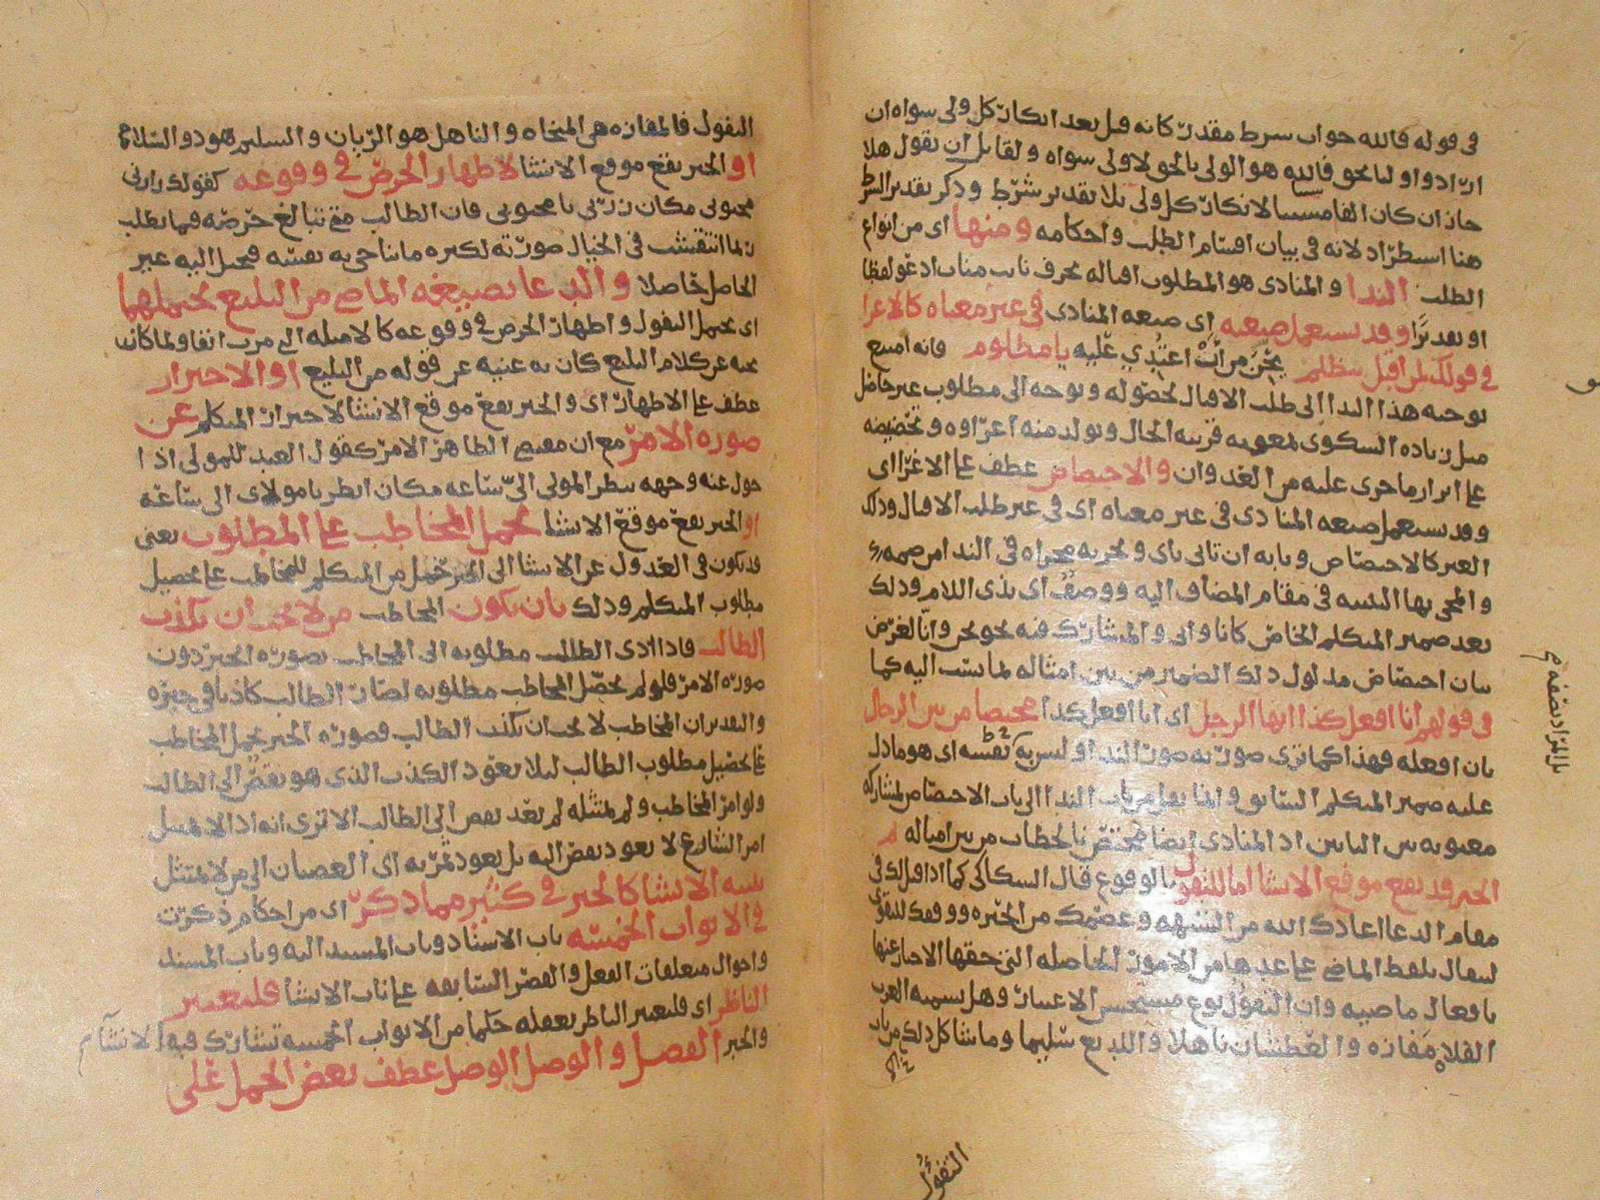 في قوله فالله جواب شرط مقدر كانه قيل بعد انكار كل ولي سواه ان
ارادوا وليا بحق فالله هو الولي بالحق لا ولي سواه ولقايل ان يقول هلا
جاز ان كان الفا مسببا لانكار كل ولي بلا تقدير شرط وذكر تقدير الشرط
هنا استطراد لانه في بيان اقسام الطلب واحكامه ومنها اى من انواع
الطلب الندا والمنادى هو المطلوب اقباله بحرف نايب مناب ادعو لفظا
او تقديرا وقد يستعمل صيغته اى صيغه المنادى في غير معناه كالاغرا
في قولك لمن اقبل يتظلم ممن اعتدي عليه يا مظلوم فانه امتنع
توجيه هذا الندا الى طلب الاقبال لحصوله وتوجه الى مطلوب غير حاصل
مثل زياده الشكوى بمعونه قرينه الحال وتولد منه اغراوه وتحضيضه
على ابراز ما جرى عليه من العدوان والاختصاص عطف على الاغرا اى
وقد يستعمل صيغه المنادى في غير معناه اى في غير طلب الاقبال وذلك
الغير كالاختصاص وبابه ان تاتى باى وتجريه مجراه في الندا من ضمه
والمجي بها التنبيه في مقام المضاف اليه ووصف اى بذى اللام وذلك
بعد ضمير المتكلم الخاص كانا واني والمشارك فيه نحو نحن وانا لغرض
بيان اختصاص مدلول ذلك الضمير من بين امثاله لما نسب اليه كما
في قولهم انا افعل كذا ايها الرجل اى انا افعل كذا مختصا من بين الرجال
بان افعله فهذا كما ترى صورته صورة الندا وليس به نفسه اى هو ما دل
عليه ضمير المتكلم السابق وانما نقل من باب الندا الى باب الاختصاص لمشاركه
معنويه بين البابين اذ المنادى ايضا مختص بالخطاب من بين امثاله ثم
الخبر قد يقع موقع الانشا اما للتفول بالوقوع قال السكاكى كما اذا قيل لك في
مقام الدعا اعاذك الله من الشبهه وعصمك من الحيره ووفقك للتقوى
ليتفال بلفظ الماضي على عدها من الامور الحاصله التي حقها الاخبار عنها
بافعال ماضيه وان التفول نوع مستحسن الاعتبار وهل تسميه العرب
الفلاه مفازه والعطشان ناهلا واللديغ سليما وما شاكل ذلك من باب
التفؤل
بل المراد بصفه
التفول فالمفازه هى المنجاه والناهل هو الريان والسليم هو ذو السلامه
او الخبر يقع موقع الانشا لاظهار الحرص في وقوعه كقولك زارنى
محبوبي مكان زرني يا محبوبي فان الطالب متى تبالغ حرصه فيما يطلب
ربما انتقشت في الخيال صورته لكثره ما يناجى به نفسه فيخيل اليه غير
الحاصل حاصلا والدعا بصيغه الماضي من البليغ يحتملهما
اى يحتمل التفول واظهار الحرص في وقوعه
كلام البليغ كان به غنيه عن قوله من البليغ او الاحتراز
عطف على الاظهار اى والخبر يقع موقع الانشا لاحتراز المتكلم عن
صوره الامر مع ان مقتضى الظاهر الامر كقول العبد للمولى اذا
حول عنه وجهه ينظر المولى الىّ ساعه مكان انظر يا مولاى الى ساعه
او الخبر يقع موقع الانشا لحمل المخاطب على المطلوب يعنى
قد يكون في العدول عن الانشا الى الخبر حمل من المتكلم للمخاطب على تحصيل
مطلوب المتكلم وذلك بان يكون المخاطب من لا يحب ان يكذب
الطالب فاذا ادى الطالب مطلوبه الى المخاطب بصوره الخبر دون
صوره الامر فلو لم يحصل المخاطب مطلوبه لصار الطالب كاذبا في خبره
والتقدير ان المخاطب لا يحب ان يكذب الطالب فصوره الخبر يحمل المخاطب
على تحصيل مطلوب الطالب ليلا يعود الكذب الذى هو نقص الى الطالب
ولو امر المخاطب ولم يمتثله لم يعد نقص الى الطالب الا ترى انه اذا لا يمتثل
امر الشارع لا يعود نقص اليه بل يعود ثمرته اى العصيان الى من لا يمتثل
تنبيه الانشا كالخبر في كثير مما ذكر اى من احكام ذكرت
في الابواب الخمسه باب الاسناد وباب المسند اليه وباب المسند
واحوال متعلقات الفعل والقصر السابقه على باب الانشا فليعتبر
الناظر اى فليعتبر الناظر بعقله حكما من الابواب الخمسه تشارك فيها الانشا
والخبر الفصل والوصل الوصل عطف بعض الجمل على